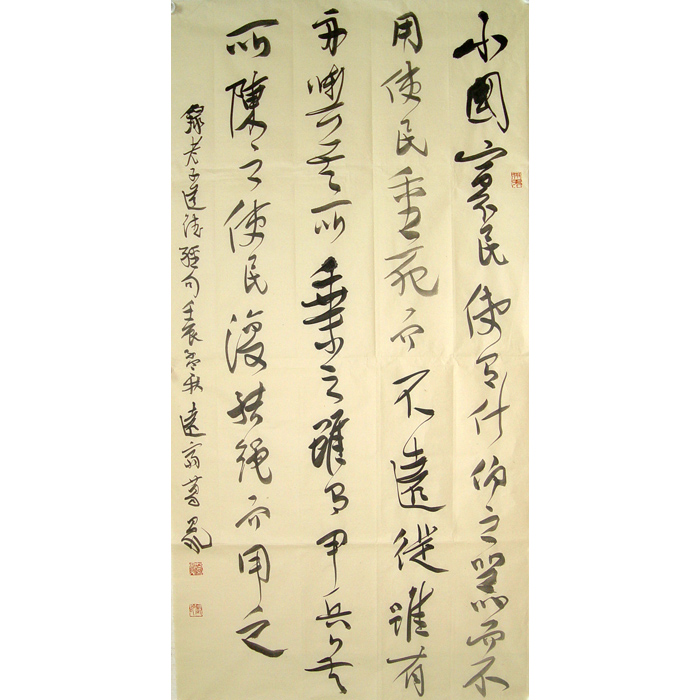 小國寡民使有什伯之器而不
用使民重死而不遠徙雖有
舟輿无所乘之雖有甲兵无
所陳之使民復結繩而用之
錄老子道德經句壬辰孟秋遠